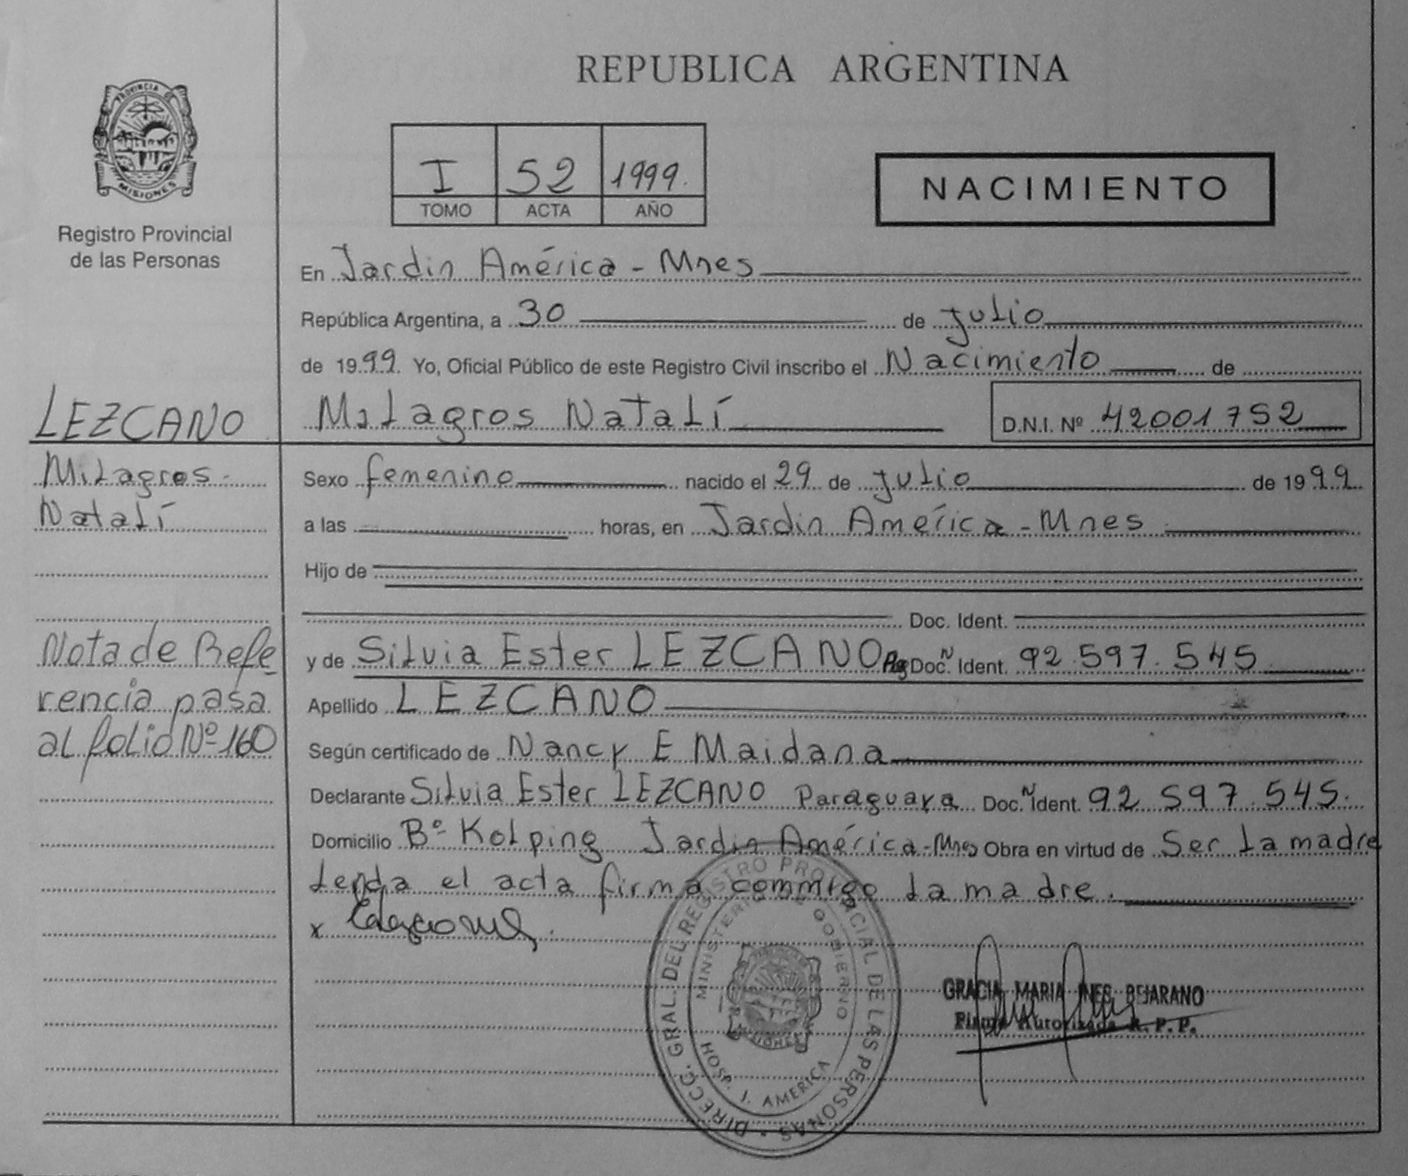 REPUBLICA ARGENTINA
PROVINCIA DE
MISIONES
Registro Provincial
de las Personas
I 52 1999.
TOMO ACTA AÑO
NACIMIENTO
En Jardin América - Mnes
República Argentina, a 30 de julio
de 1999. Yo, Oficial Público de este Registro Civil inscribo el Nacimiento de
LEZCANO
Milagros Natalí D.N.I. Nº 42001752
Milagros-
Natalí
Sexo femenino nacido el 29 de julio de 1999
a las horas, en Jardin América - Mnes
Hijo de
Doc. Ident.
Nota de Refe-
rencia pasa
al folio Nº 160
y de Silvia Ester LEZCANO Doc. Ident. 92.597.545
Apellido LEZCANO
Según certificado de Nancy E Maidana
Declarante Silvia Ester LEZCANO Paraguaya Doc. Ident. 92 597.545.
Domicilio Bº Kolping Jardin América - Mnes Obra en virtud de Ser la madre
Leída el acta firma conmigo la madre.
x
DIRECC. GRAL. DEL REGISTRO PROVINCIAL DE LAS PERSONAS
MINISTERIO DE GOBIERNO
HOSP. J. AMERICA
MISIONES
GRACIA MARIA INES BEJARANO
Firma Autorizada R. P. P.